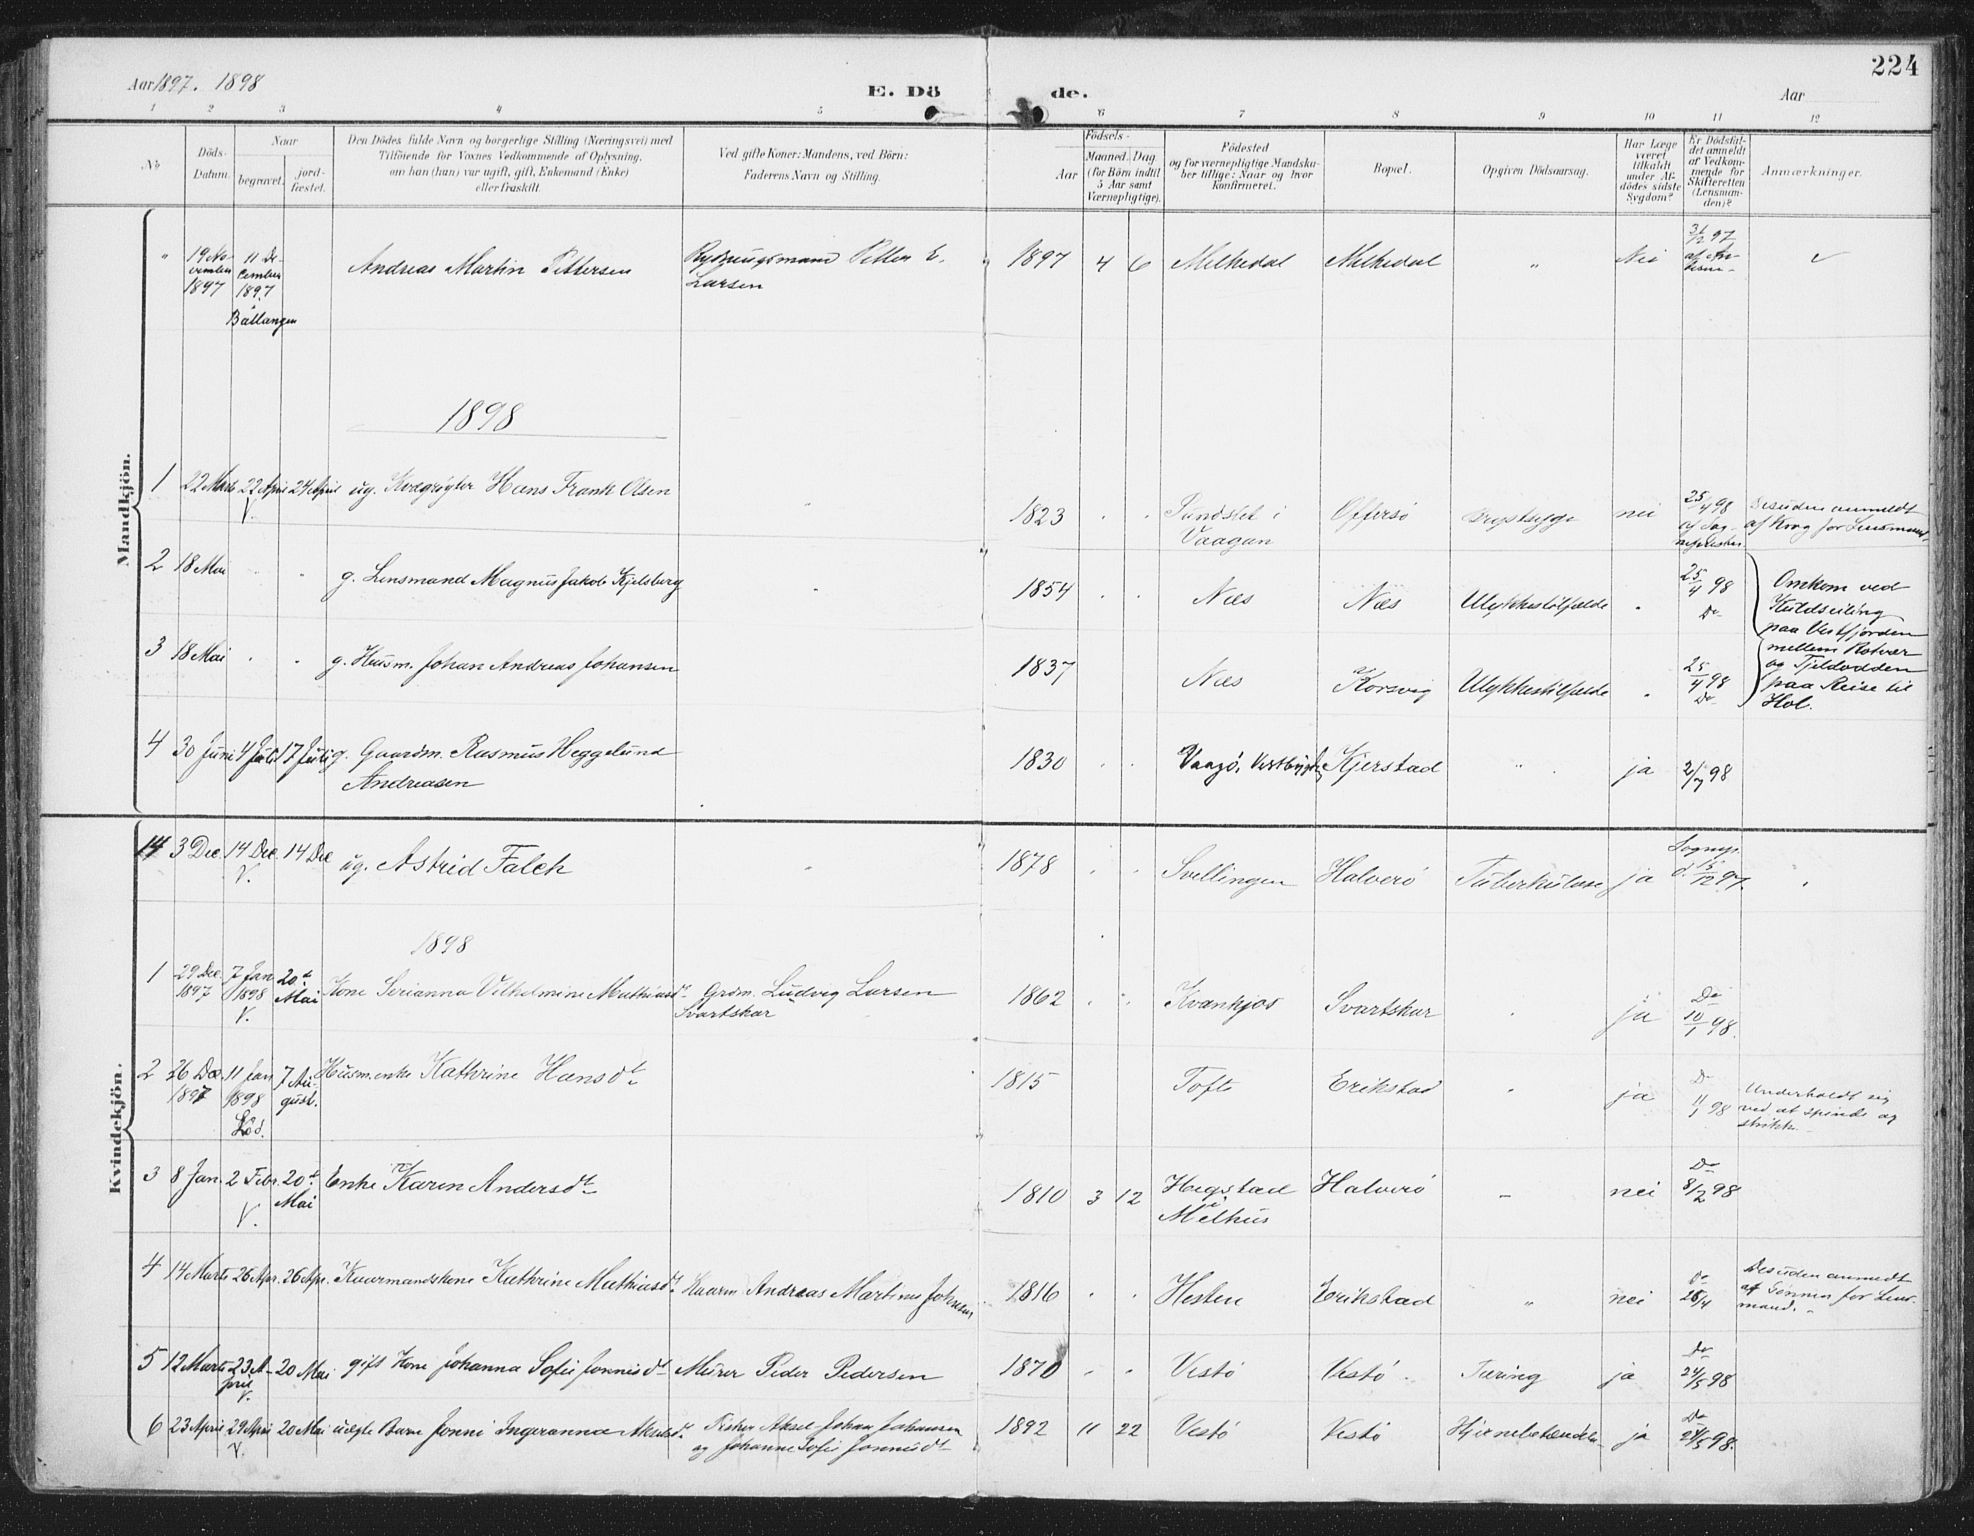 224
Aar 1897. 1898
E. Dö de.
Aar
1 2 3 4 5 6 7 8 9 10 11 12
No
Döds-Datum.
Naar
begravet.
jord-fæstet.
Den Dödes fulde Navn og borgerlige Stilling (Næringsvei) med
Tilföiende for Voxnes Vedkommende af Oplysning,
om han (hun) var ugift, gift, Enkemand (Enke)
eller fraskilt.
Ved gifte Koner: Mandens, ved Börn:
Faderens Navn og Stilling.
Födsels-
Aar
Maaned. Dag
(for Börn indtil
5 Aar samt
Værnepligtige).
Födested
og for værnepligtige Mandska-
ber tillige: Naar og hvor
Konfirmeret.
Bopæl.
Opgiven Dödsaarsag.
Har Læge
været
tilkaldt
under Af-
dödes sidste
Sygdom?
Er Dödsfal-
det anmeldt
af Vedkom-
mende for
Skifteretten
(Lensman-
den)?
Anmærkninger.
Mandkjön.
" 19 No-vember 1897 11 De-cember 1897 Ballangen Andreas Martin Pettersen Petter E. Larsen 1897 4 6 Melkedal Melkedal " Nei 31/12 97
1898
1 22 Marts 22 April V. 24 April ug. Hans Frank Olsen 1823 " " Sundslet i Vaagan Offersö Brystsyge nei 25/4 98 Desuden anmeldt af for Lensmand.
2 18 Mai " " g. Lensmand Magnus Jakob Kjelsberg " 1854 " " Næs Næs Ulykkestilfælde " 25/4 98 Do
3 18 Mai " " g. Husm. Johan Andreas Johansen 1837 Næs Korsvig Ulykkestilfælde " 25/4 98 Do
Omkom ved
Kuldseiling
paa Vestfjorden
mellem Rotvær
og Tjeldodden
paa Reise til
Hol.
4 30 Juni 4 Juli 17 Juli g. Gaardm. Rasmus Heggelund Andreasen 1830 " " Vaagö, Kjerstad " ja 2/7 98
Kvindekjön.
14 3 Dec. 14 Dec. V. 14 Dec ug. Astrid Falch " 1878 " " Svellingen Halverö Tuberkulose ja Sognep. d. 15/12 97. "
1898
1 29 Dec. 1897 7 Jan. 1898 V. 20de Mai Kone Serianna Vilhelmine Mathiasdt. Grdm. Ludvig Larsen Svartskar 1862 " " Kvankjos Svartskar " ja Do 10/1 98.
2 26 Dec. 1897 11 Jan. 1898 Löd. 7 Au-gust. Husm.enke Kathrine Hansdt. 1815 Tofte Erikstad " ja Do 11/1 98 Underholdt sig ved at spinde og strikke.
3 8 Jan. 2 Febr. V. 20de Mai Enke Karen Andersdt. 1810 3 12 Hegstad i Melhus Halverö - nei Do 8/2 98
4 14 Marts 26 Apr. 26 Apr. Kaarmandskone Kathrine Mathiasdt. Kaarm. Andreas Martinus Johnsen 1816 " " Hesten Erikstad " nei Do 26/4 Desuden anmeldt af Sönnen for Lens-mand.
5 12 Marts 23 A-pril V. 20 Mai gift Kone Johanna Sofie Jonnisdt. Murer Peder Pedersen 1870 " " Vestö Vestö Tæring ja Do 24/5 98
6 23 April 29 April V. 20 Mai uægte Barn Jonni Ingeranna Akselsdt. Fisker Aksel Johan Johansen og Johanne Sofie Jonnisdt. 1892 11 22 Vestö Vestö Hjernebetændelse ja Do 24/5 98.